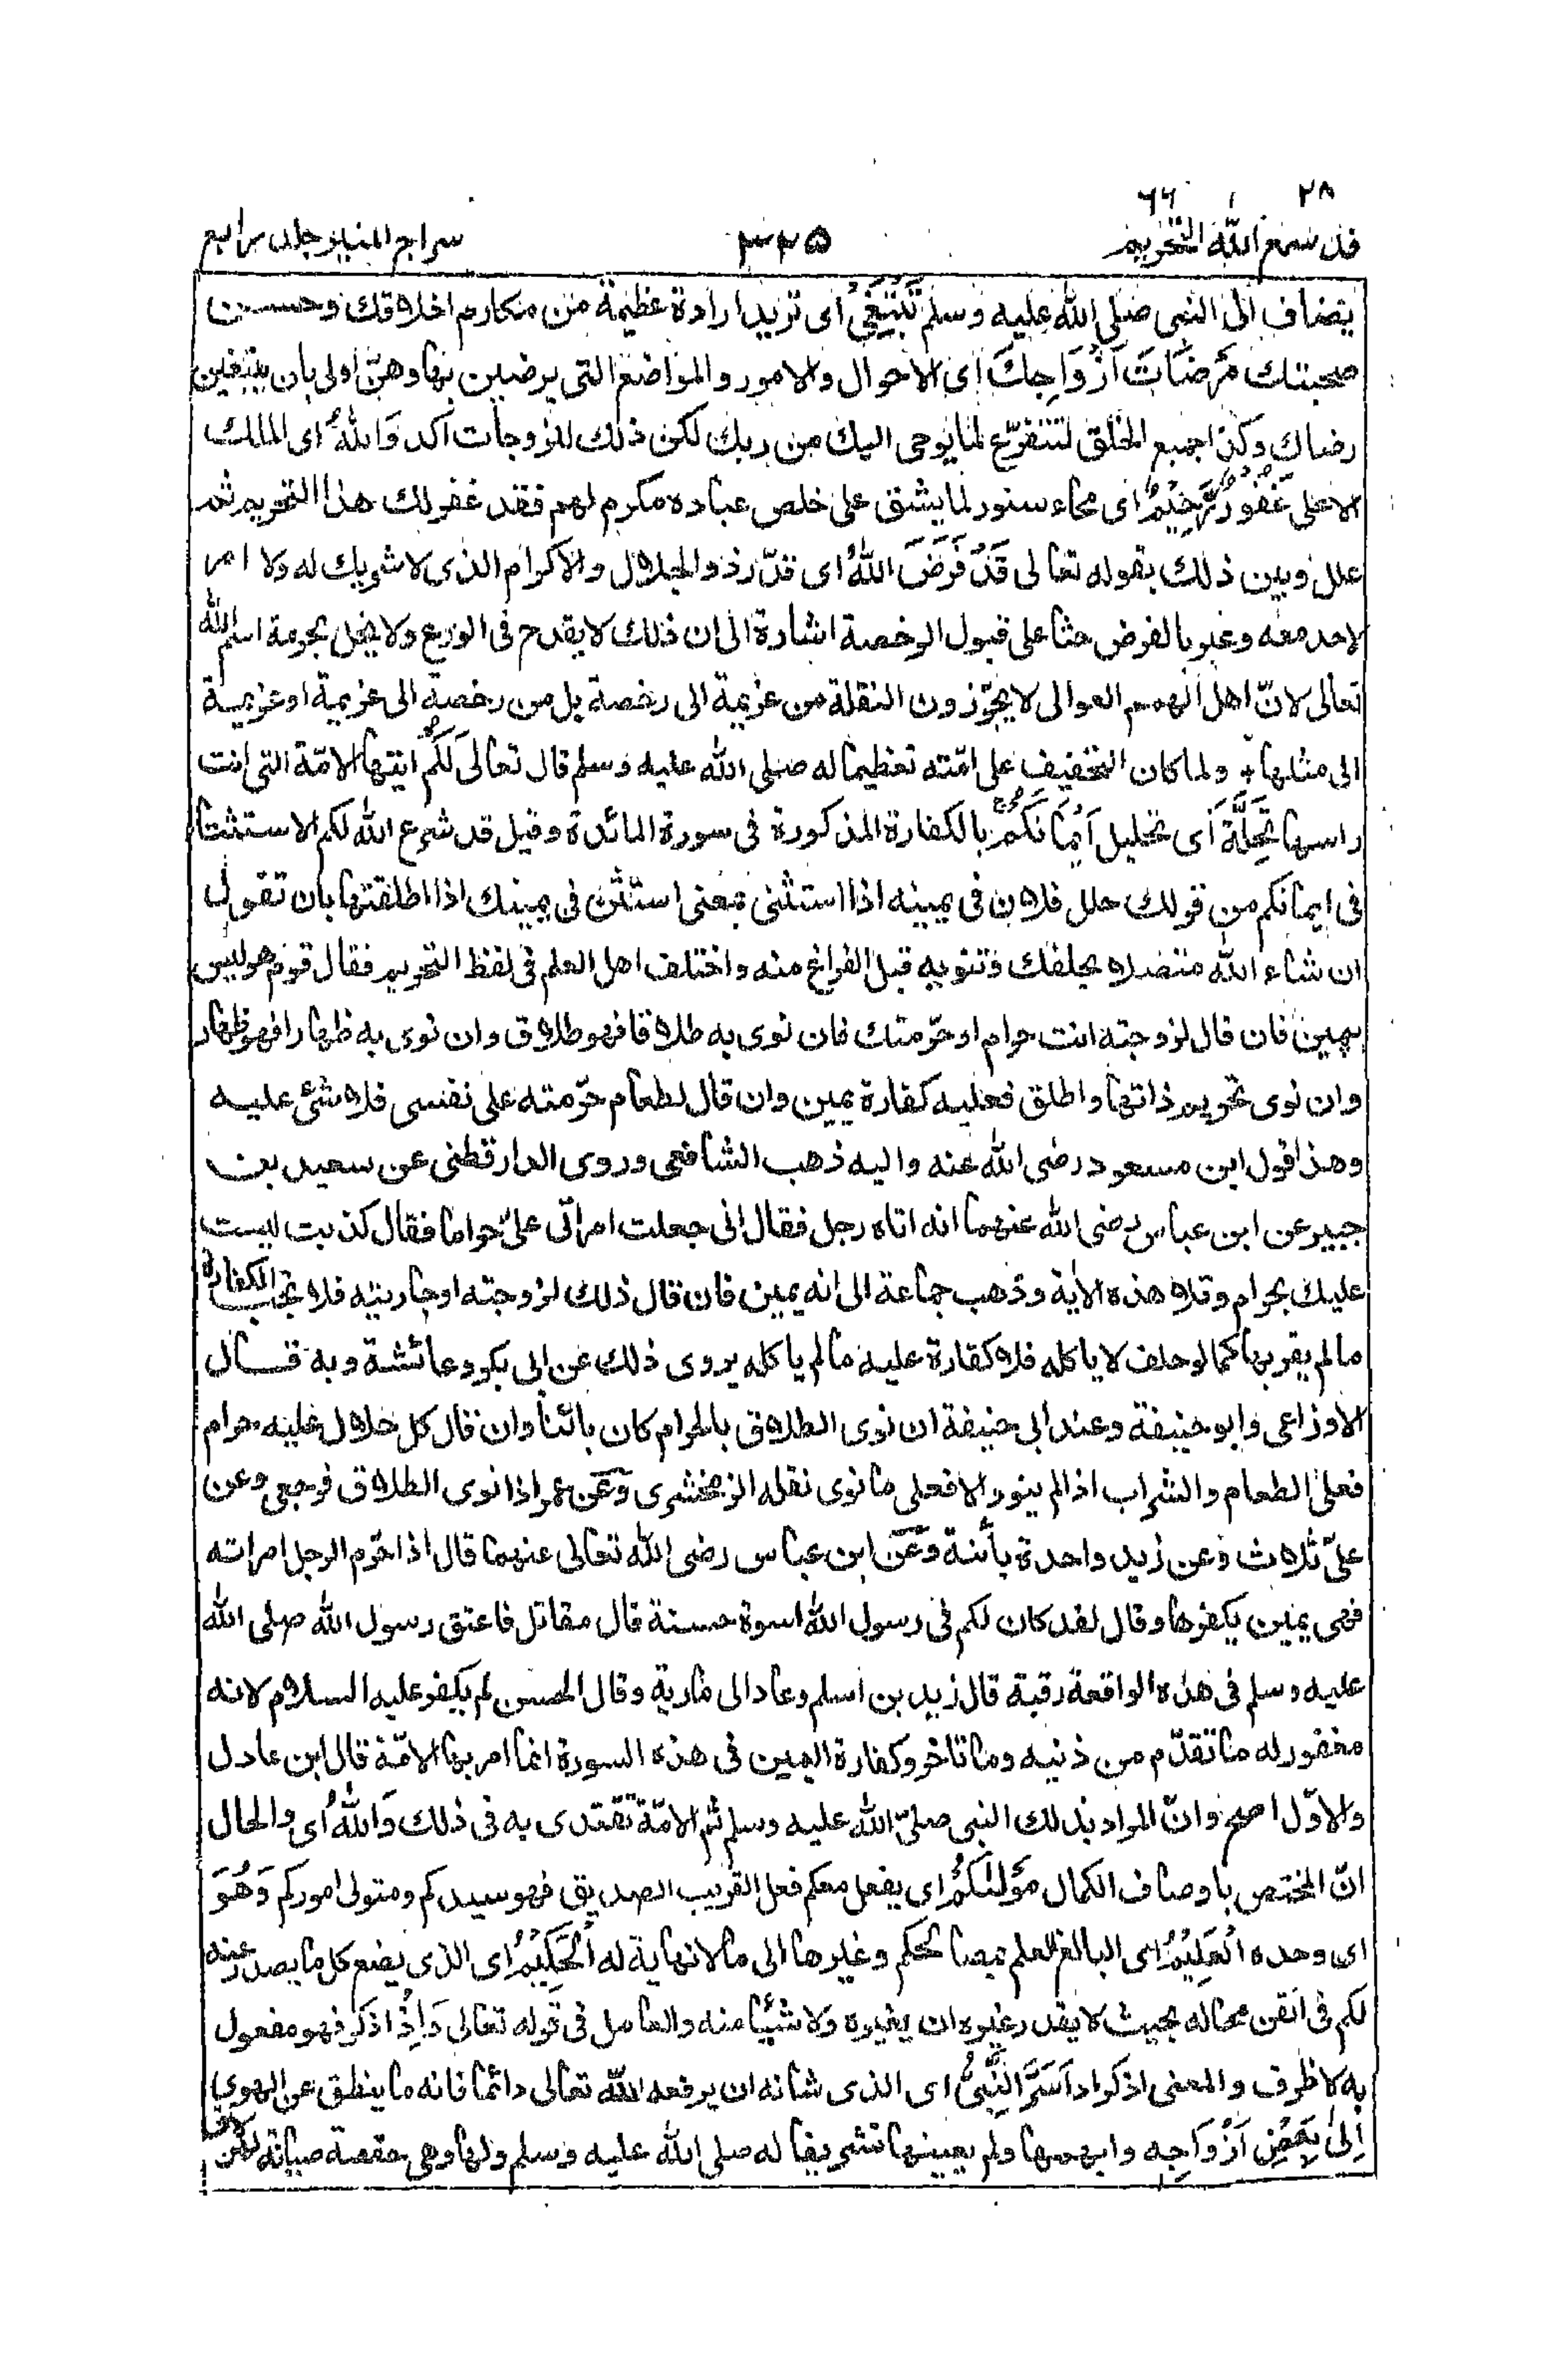 ٢٨ ٦٦
قد سمع الله التحريم ٣٢٥ سراج المنير جلد رابع
يضاف الى النبى صلى الله عليه وسلم تَبْتَغِىْ اى تريد ارادة عظيمة من مكارم اخلاقك وحسن
صحبتك مَرْضَاتَ اَزْوَاجِكَ اى الاحوال والامور والمواضع التى يرضين بها وهنّ اولى بان يبتغين
رضاك وكذا جميع الخلق لتتفرّغ لما يوحى اليك من ربك لكن ذلك للزوجات آكد وَاللّٰهُ اى الملك
الاعلى غَفُوْرٌ رَّحِيْمٌ اى محاء ستور لما يشق على خلص عباده مكرم لهم فقد غفر لك هذا التحريم ثم
علل وبين ذلك بقوله تعالى قَدْ فَرَضَ اللّٰهُ اى قدّر ذو الجلال والاكرام الذى لا شريك له ولا امر
لاحد معه وعبر بالفرض حثا على قبول الرخصة اشارة الى ان ذلك لا يقدح فى الورع ولا يخل بحرمة اسم الله
تعالى لانّ اهل الهمم العوالى لا يجوّزون النقلة من عزيمة الى رخصة بل من رخصة الى عزيمة او عزيمة
الى مثلها + ولما كان التخفيف على امّته تعظيما له صلى الله عليه وسلم قال تعالى لَكُمْ ايتها الامّة التى انت
راسها تَحِلَّةَ اى تحليل اَيْمَانِكُمْ بالكفارة المذكورة فى سورة المائدة وقيل قد شرع الله لكم الاستثناء
فى ايمانكم من قولك حلل فلان فى يمينه اذا استثنى بمعنى استثن فى يمينك اذا اطلقتها بان تقول
ان شاء الله متصلا بحلفك وتنويه قبل الفراغ منه واختلف اهل العلم فى لفظ التحريم فقال قوم هو ليس
بيمين فان قال لزوجته انت حرام او حرّمتك فان نوى به طلاقا فهو طلاق وان نوى به ظهارا فهو ظهار
وان نوى تحريم ذاتها واطلق فعليه كفارة يمين وان قال لطعام حرّمته على نفسى فلا شئ عليه
وهذا قول ابن مسعود رضى الله عنه واليه ذهب الشافعى وروى الدارقطنى عن سعيد بن
جبير عن ابن عباس رضى الله عنهما انه اتاه رجل فقال انى جعلت امراتى علىّ حراما فقال كذبت ليست
عليك بحرام وتلا هذه الاٰية وذهب جماعة الى انه يمين فان قال ذلك لزوجته او جاريته فلا تجب الكفارة
ما لم يقربها كما لو حلف لا ياكله فلا كفارة عليه ما لم ياكله يروى ذلك عن ابى بكر وعائشة وبه قال
الاوزاعى وابو حنيفة وعند ابى حنيفة ان نوى الطلاق بالحرام كان بائنا وان قال كل حلال عليه حرام
فعلى الطعام والشراب اذا لم ينو والا فعلى ما نوى نقله الزمخشرى وعن عمر اذا نوى الطلاق فرجعى وعن
علىّ ثلاث وعن زيد واحدة بائنة وعن ابن عباس رضى الله تعالى عنهما قال اذا حرّم الرجل امراته
فهى يمين يكفرها وقال لقد كان لكم فى رسول الله اسوة حسنة قال مقاتل فاعتق رسول الله صلى الله
عليه وسلم فى هذه الواقعة رقبة قال زيد بن اسلم وعاد الى مارية وقال الحسن لم يكفر عليه السلام لانه
مغفور له ما تقدّم من ذنبه وما تاخر وكفارة اليمين فى هذه السورة انما امر بها الامّة قال ابن عادل
والاوّل اصح وانّ المراد بذلك النبى صلىّ الله عليه وسلم ثم الامّة تقتدى به فى ذلك وَاللّٰهُ اى والحال
انّ المختص باوصاف الكمال مَوْلٰىكُمْ اى يفعل معكم فعل القريب الصديق فهو سيدكم ومتولى اموركم وَهُوَ
اى وحده الْعَلِيْمُ اى البالغ العلم بمصالحكم وغيرها الى ما لا نهاية له الْحَكِيْمُ اى الذى يضع كل ما يصدر عنه
لكم فى اتقن محاله بحيث لا يقدر غيره ان يغيره ولا شيًا منه والعامل فى قوله تعالى وَاِذْ اذكر فهو مفعول
به لا ظرف والمعنى اذكر اذ اَسَرَّ النَّبِىُّ اى الذى شانه ان يرفعه اللّه تعالى دائما فانه ما ينطق عن الهوى
اِلٰى بَعْضِ اَزْوَاجِهٖ وابهمها ولم يعينها تشريفا له صلى الله عليه وسلم ولها وهى حفصة صيانة لهن لان